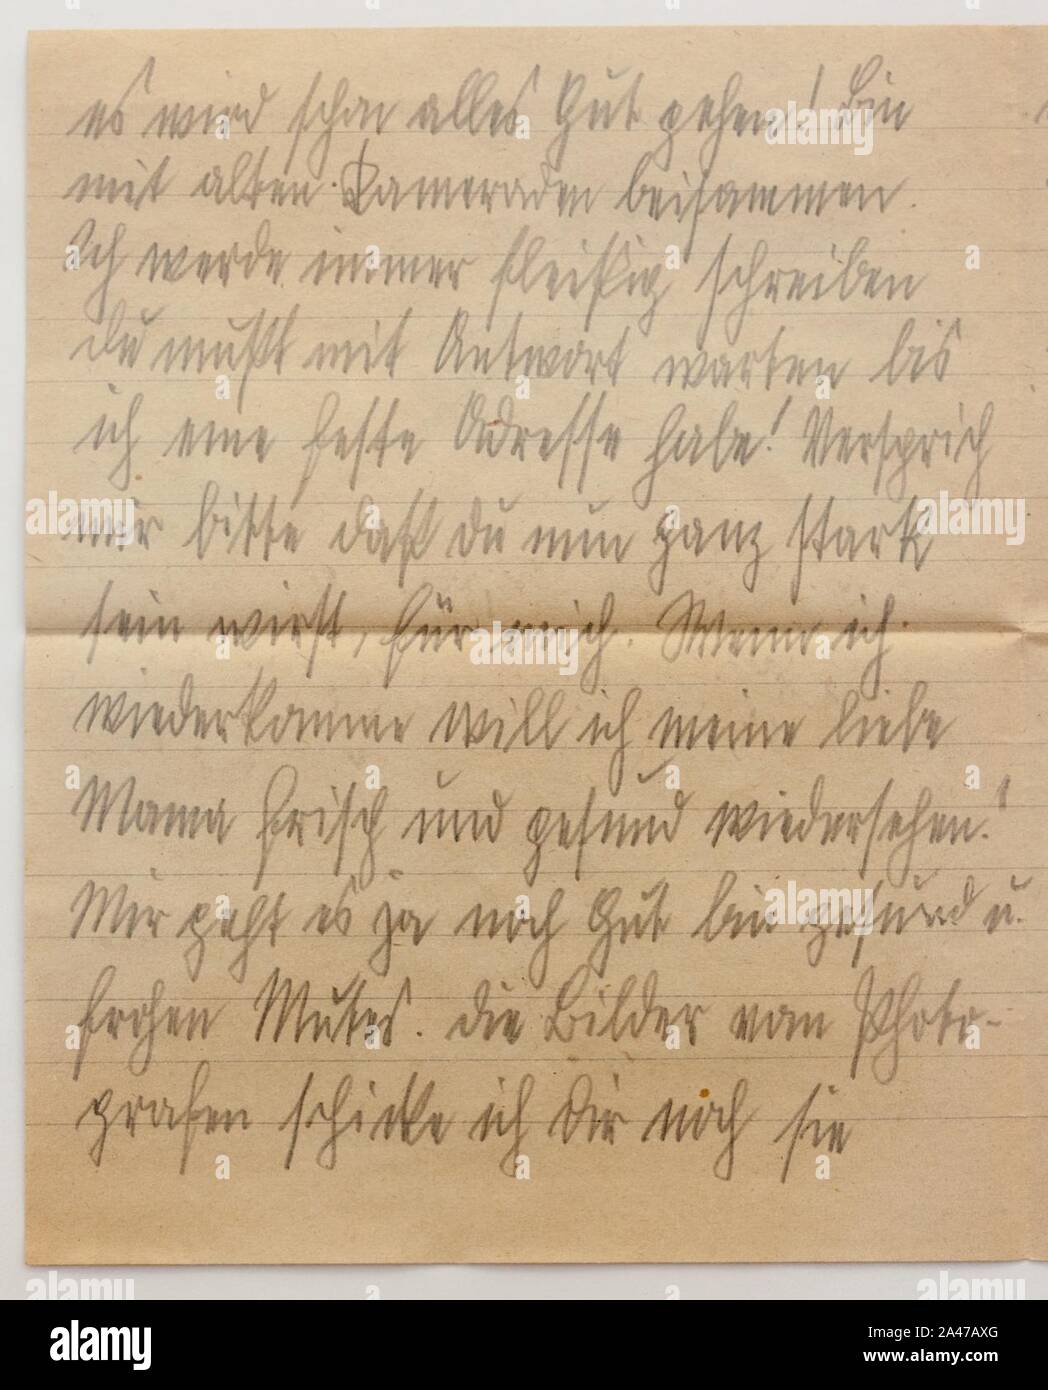 es wird schon alles Gut gehen! Bin
mit alten Kameraden beisammen.
Ich werde immer fleißig schreiben
du mußt mit Antwort warten bis
ich eine feste Adresse habe! Versprich
mir bitte daß du nun ganz stark
sein wirst, für mich. Wenn ich
wiederkomme will ich meine liebe
Mama frisch und gesund wiedersehen!
Mir geht es ja noch Gut bin gesund u.
frohen Mutes. die Bilder vom Photo-
grafen schicke ich Dir noch sie
alamy
Image ID: 2A47AXG
www.alamy.com